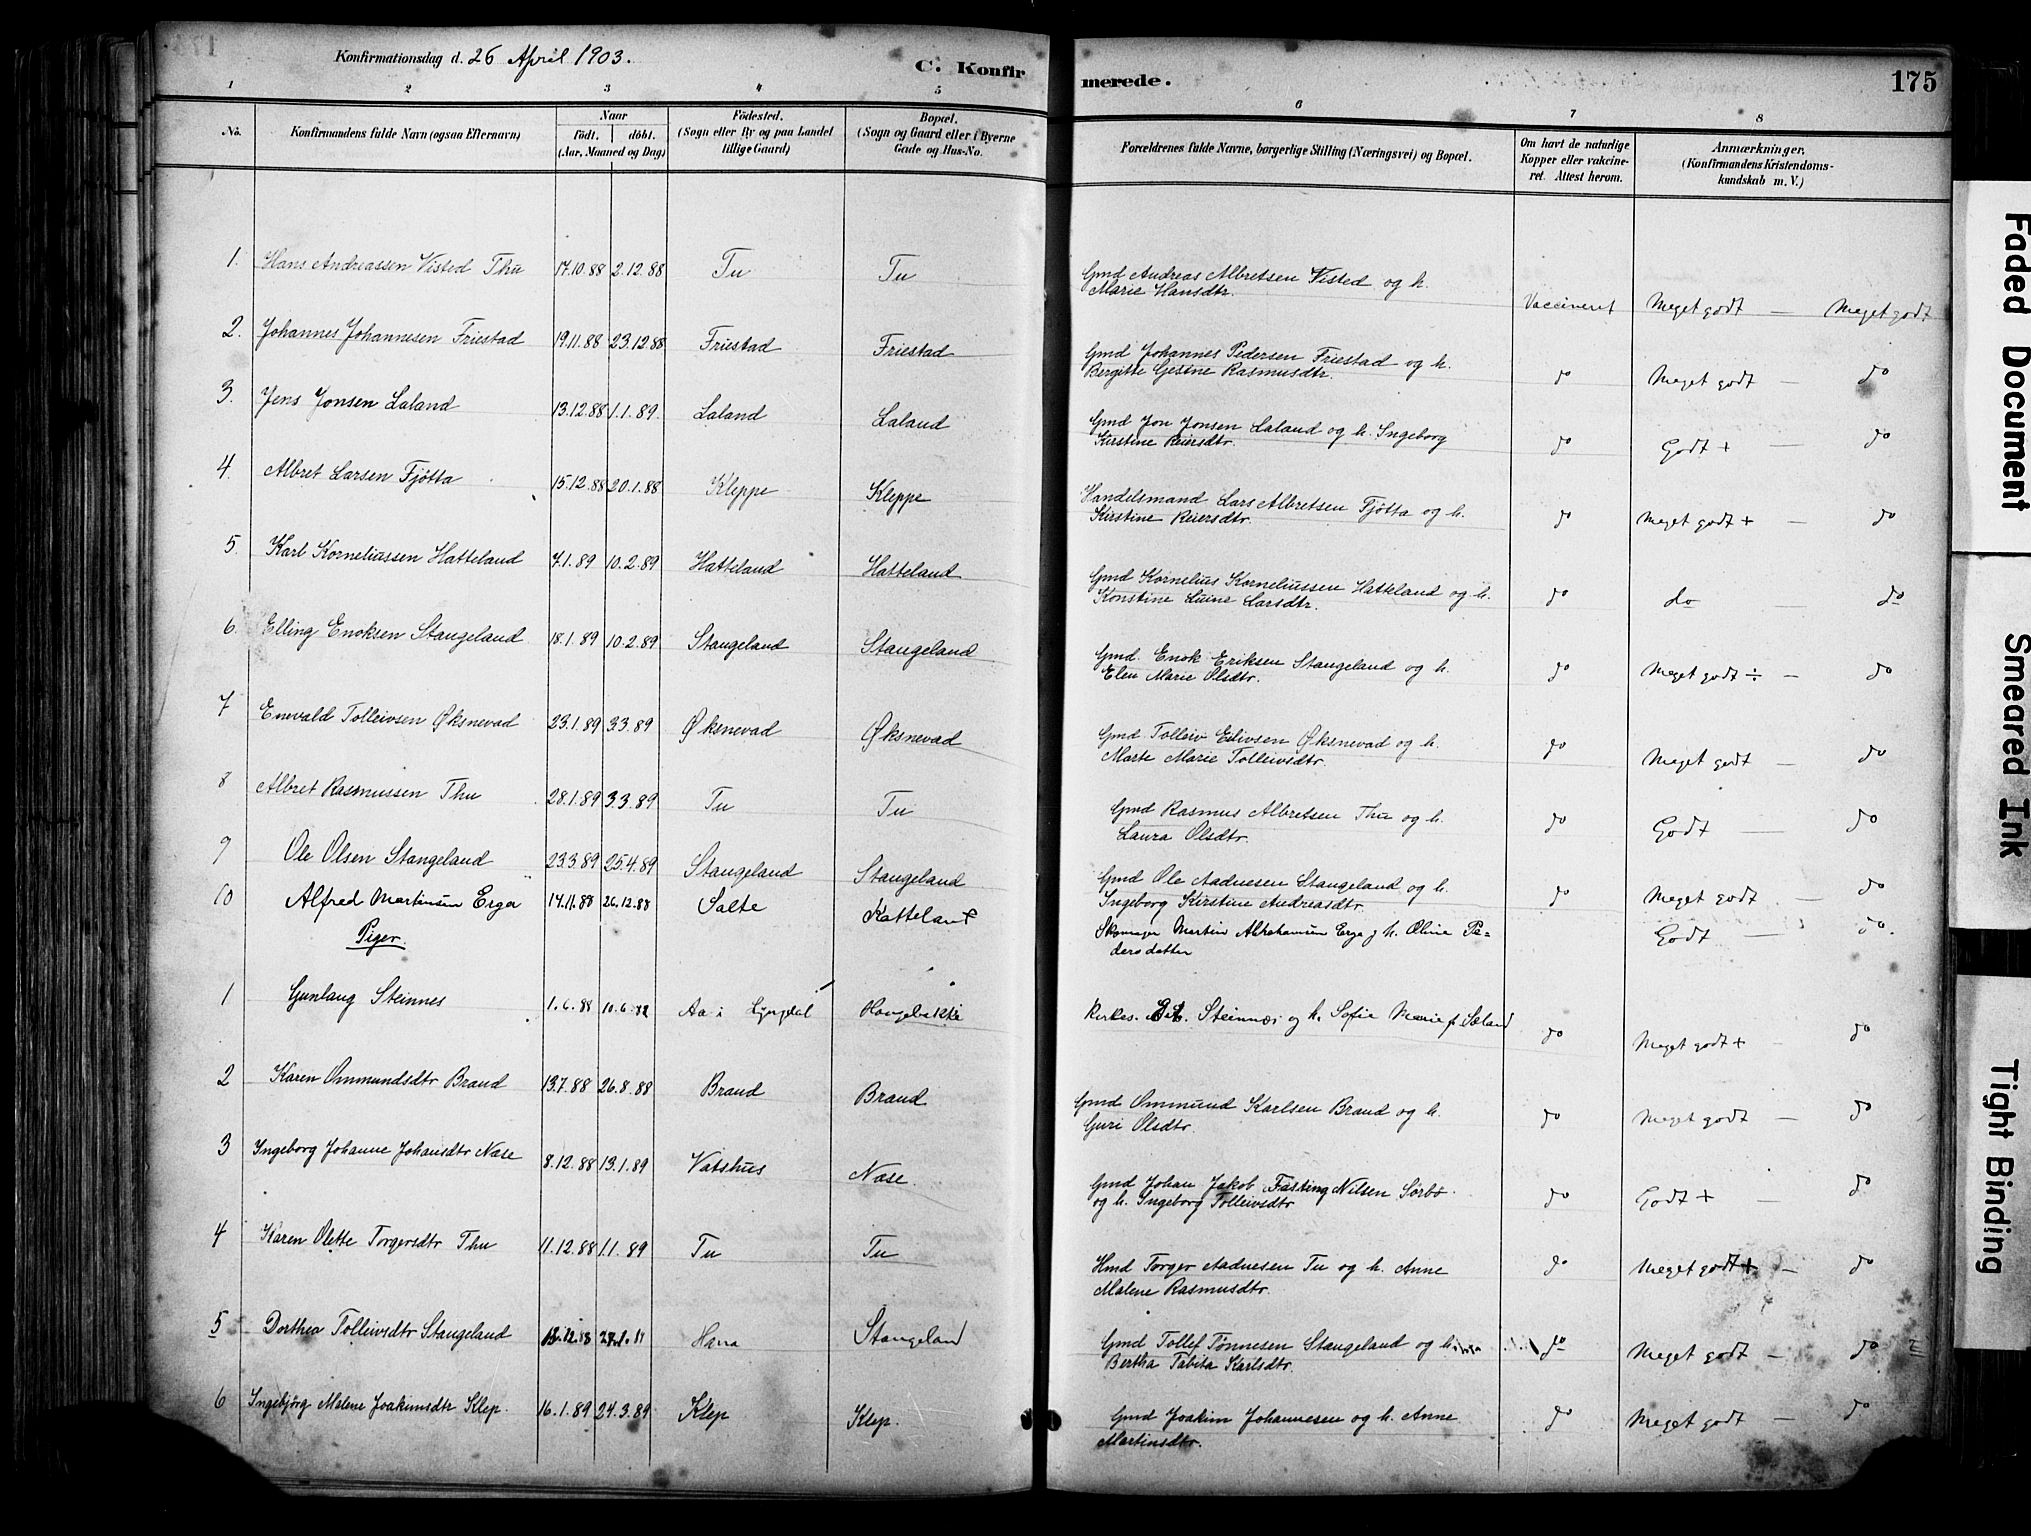 Konfirmationsdag d. 26 April 1903.
C. Konfirmerede.
175
1 2 3 4 5 6 7 8
No. Konfirmandens fulde Navn (ogsaa Efternavn) Naar født. døbt. (Aar, Maaned og Dag) Fødested. (Sogn eller By og paa Landet tillige Gaard) Bopæl. (Sogn og Gaard eller i Byerne Gade og Hus-No. Forældrenes fulde Navne, borgerlige Stilling (Næringsvei) og Bopæl. Om havt de naturlige Kopper eller vakcineret. Attest herom. Anmærkninger. (Konfirmandens Kristendomskundskab m. V.)
1. Hans Andreassen Visted Thu 17.10.88 2.12.88 Tu Tu Gmd Andreas Albretsen Visted og h. Marie Hansdtr. Vaccineret Meget godt — Meget godt
2. Johannes Johannesen Friestad 19.11.88 23.12.88 Friestad Friestad Gmd Johannes Pedersen Friestad og h. Bergitte Gesine Rasmusdtr. do Meget godt — do
3. Jens Jonsen Laland 13.12.88 1.1.89. Laland Laland Gmd Jon Jonsen Laland og h. Ingeborg Kirstine Reiersdtr. do Godt + — do
4. Albret Larsen Fjøtta 15.12.88 20.1.88 Kleppe Kleppe Handelsmand Lars Albretsen Fjøtta og h. Kirstine Reiersdtr. do Meget godt + — do
5. Karl Korneliussen Hatteland 7.1.89 10.2.89 Hatteland Hatteland Gmd Kornelius Korneliussen Hatteland og h. Konstine Luine Larsdtr. do do — do
6. Elling Enoksen Stangeland 18.1.89 10.2.89 Stangeland Stangeland Gmd. Enok Eriksen Stangeland og h. Elen Marie Olsdtr. do Meget godt ÷ — do
7 Enevald Tolleivsen Øksnevad 23.1.89 3.3.89 Øksnevad Øksnevad Gmd Tolleiv Eilivsen Øksnevad og h. Marte Marie Tolleivsdtr. do Meget godt — do
8 Albret Rasmussen Thu 28.1.89 3.3.89 Tu Tu Gmd Rasmus Albretsen Thu og h. Laura Olsdtr. do Godt — do
9 Ole Olsen Stangeland 23.3.89 25.4.89 Stangeland Stangeland Gmd Ole Aadnesen Stangeland og h. Ingeborg Kirstine Andreasdtr. do Meget godt — do
10 Alfred Martinsen Erga 14.11.88 26.12.88 Salte Hatteland Skomager Martin Abrahamsen Erga & h. Oline Pedersdatter Godt — do.
Piger.
1 Gunlaug Steinnes 1.6.88 10.6.88 Aa i Lyngdal Haugebakke Kirkes. Steinnes og h. Sofie Marie f. Sæland do Meget godt + — do
2 Karen Ommundsdtr Braud 13.7.88 26.8.88 Braud Braud Gmd Ommund Karlsen Braud og h. Guri Olsdtr. do Meget godt — do
3 Ingeborg Johanne Johansdtr Nase 8.12.88 13.1.89 Vatshus Nase. Gmd Johan Jakob Fasting Nilsen Sørbø og h. Ingeborg Tolleivsdtr do Godt + — do
4 Karen Olette Torgersdtr Thu 11.12.88 1.1.89 Tu Tu Hmd Torger Aadnesen Tu og h. Anne Malene Rasmusdtr. do Meget godt + — do
5 Dorthea Tolleivsdtr Stangeland Hana Stangeland Gmd Tollef Tønnesen Stangeland og h. Bertha Tabita Karlsdtr. do Meget godt — do
6 Ingebjørg Malene Joakimsdtr Klep. 16.1.89 24.3.89 Klep Klep. Gmd Joakim Johannesen og h. Anne Martinsdtr. do Meget godt — do
Faded Document
Smeared Ink
Tight Binding